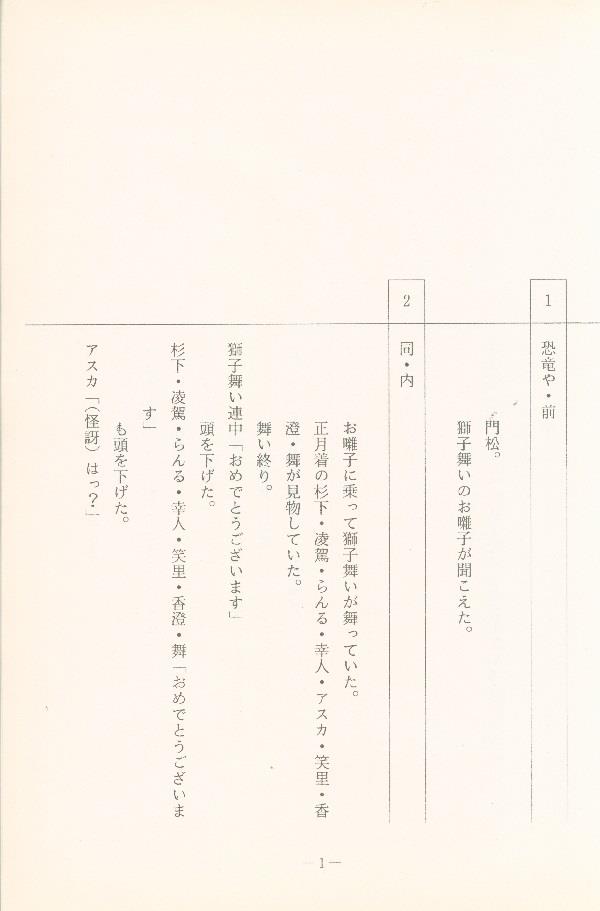 1 恐竜や・前
門松。
獅子舞いのお囃子が聞こえた。
2 同・内
お囃子に乗って獅子舞いが舞っていた。
正月着の杉下・凌駕・らんる・幸人・アスカ・笑里・香
澄・舞が見物していた。
舞い終り。
獅子舞い連中「おめでとうございます」
頭を下げた。
杉下・凌駕・らんる・幸人・笑里・香澄・舞「おめでとうございま
す」
も頭を下げた。
アスカ「(怪訝)はっ?」
—1—